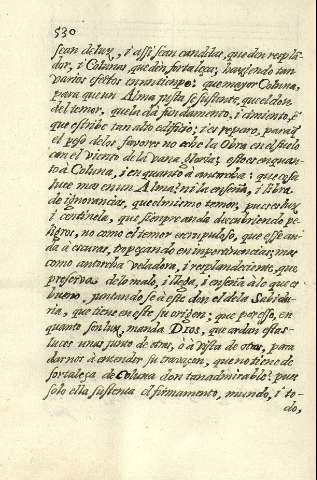 530
sean de luz, i assi sean candidas, que den resplã-
dor, i Colunas, que den fortaleça; haziendo tan
varios efectos en un tiempo: que mayor Coluna,
para que un Alma justa se sustente, que el don
del temor, que la dà fundamento, i cimiento, ẽ
que estribe tan alto edificio; i es reparo, para q̃
el peso de los favores no eche la Obra en el suelo
con el viento de la vana gloria; esto es en quan-
to à Coluna, i en quanto à antorcha: que cosa
luce mas en un Alma? ni la enseña, i libra
de ignorancias, que el mismo temor; pues es luz
i centinela, que siempre anda descubriendo pe-
ligros, no como el temor escrupuloso, que esse an-
da à escuras, tropeçando en impertinencias; mas
como antorcha voladora, i resplandeciente, que
preserva de lo malo, i llega, i enseña à lo que es
bueno, juntando se à este don el de la Sabidu-
ria, que tiene en este su origen; que por esso, en
quanto son luz, manda DIOS, que ardan estas
luces unas junto de otras, ò à vista de otras, para
darnos à entender su travaçon, que no tiene de
fortaleça de Coluna don tan admirable? pues
solo ella sustenta el firmamento, mundo, i to-
do,